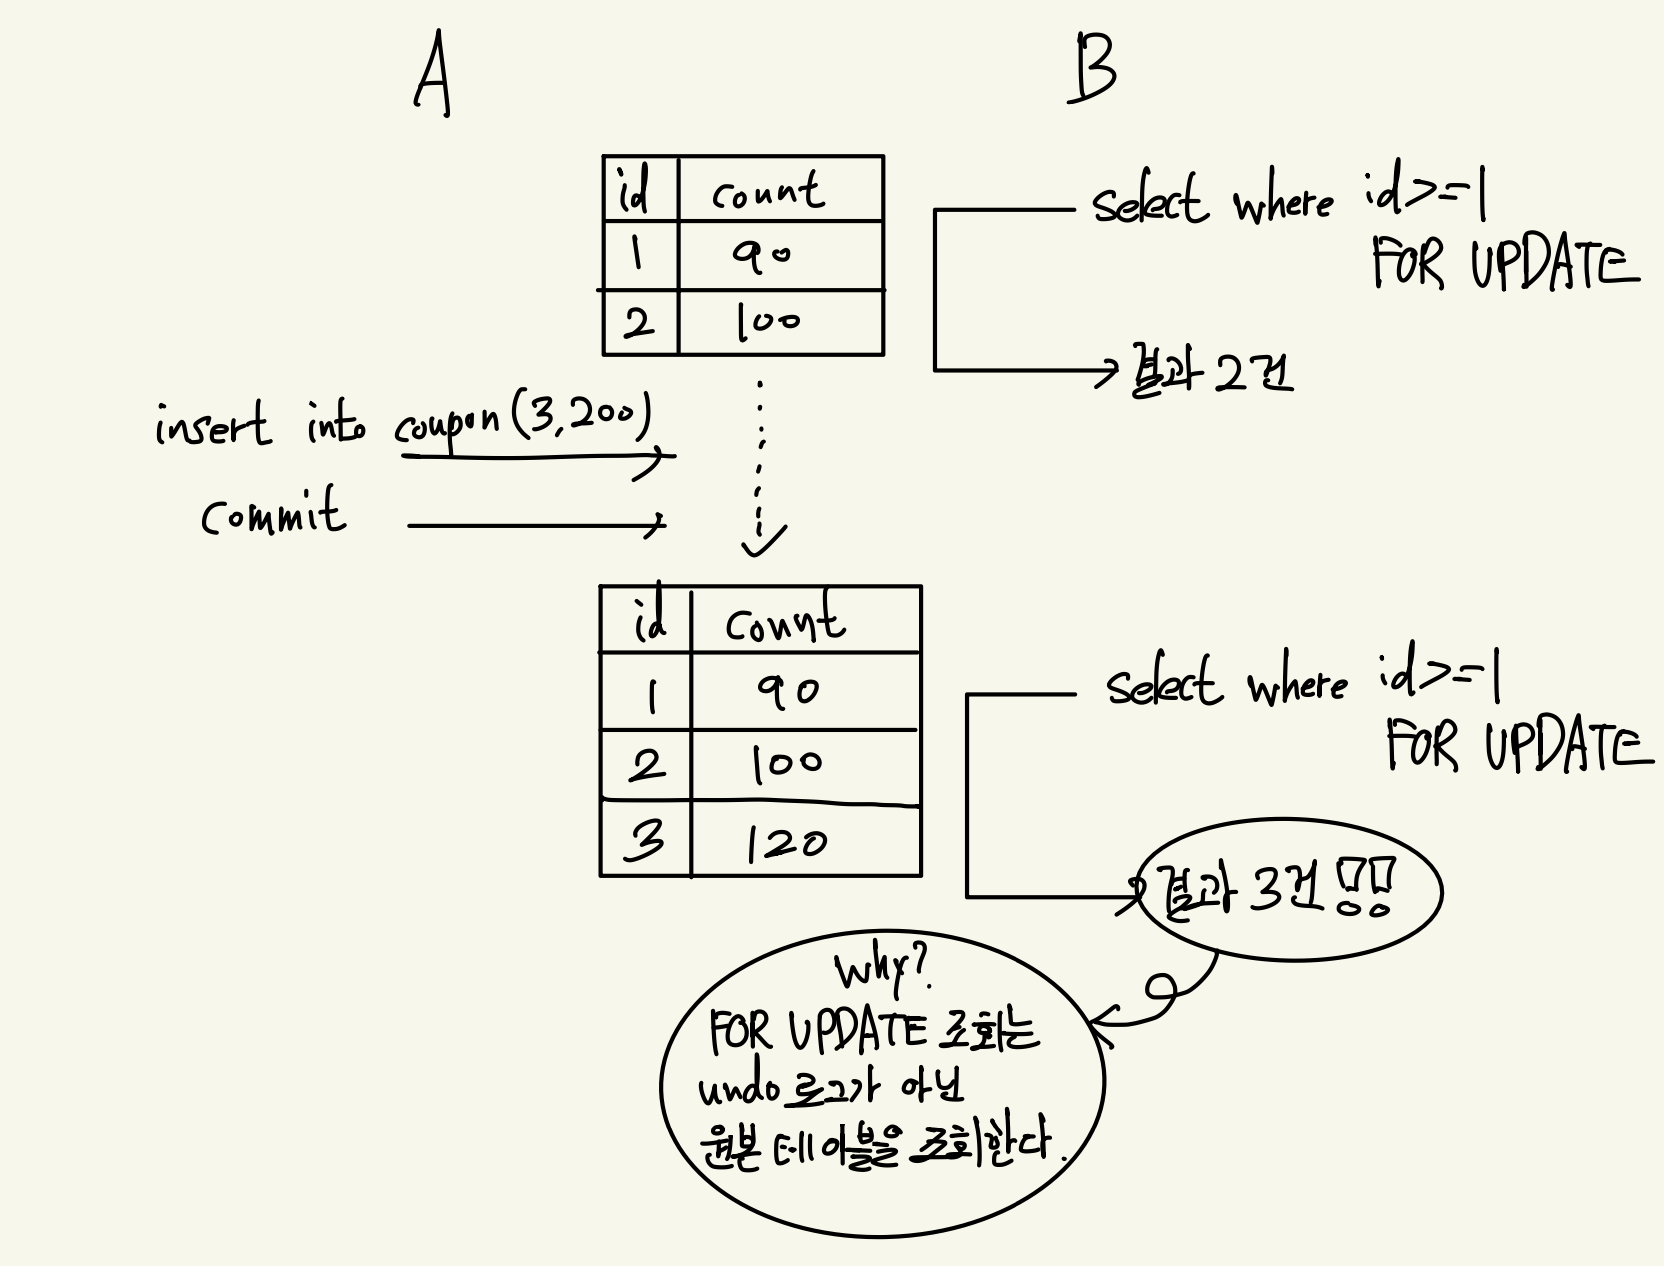 A
B
id count
1 90
2 100
select where id>=1
FOR UPDATE
결과 2건
insert into coupon (3,200)
commit
id count
1 90
2 100
3 120
select where id>=1
FOR UPDATE
결과 3건!!
Why?
FOR UPDATE 조회는
undo 로그가 아닌
원본 테이블을 조회한다.